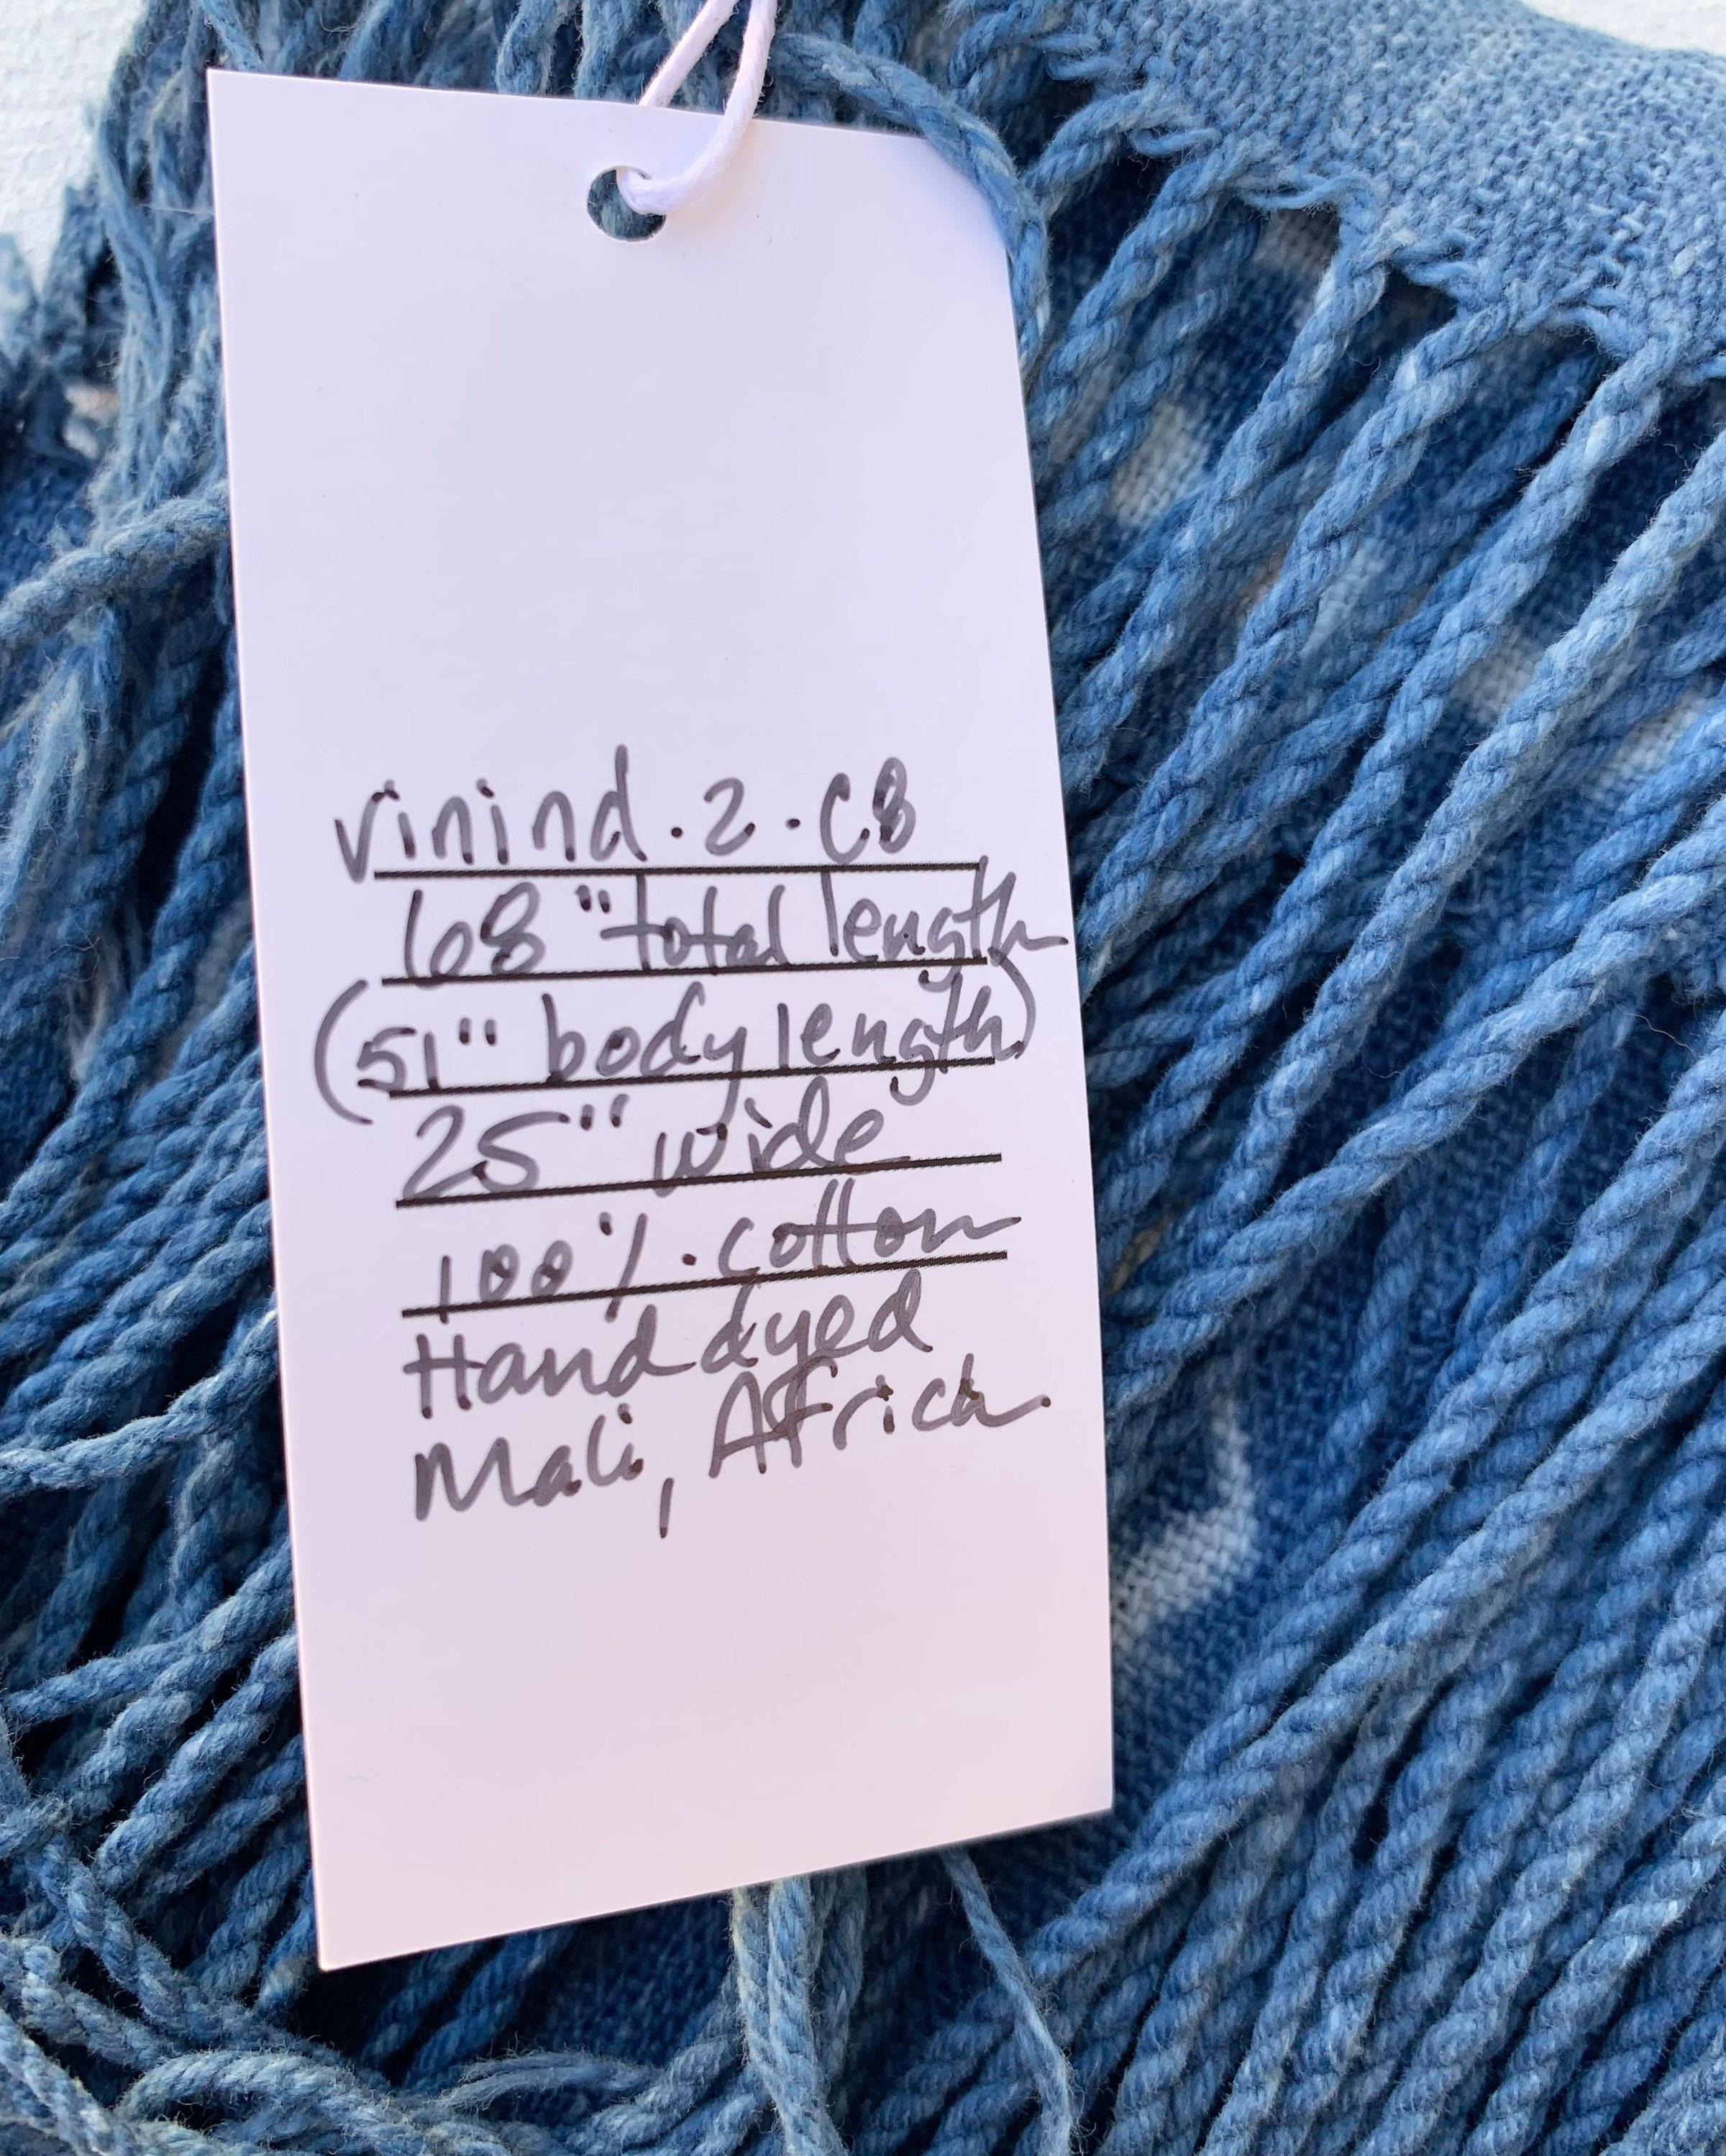 vinind.2.C8
68" total length
(51" body length)
25" wide
100%.cotton
Hand dyed
Mali, Africa